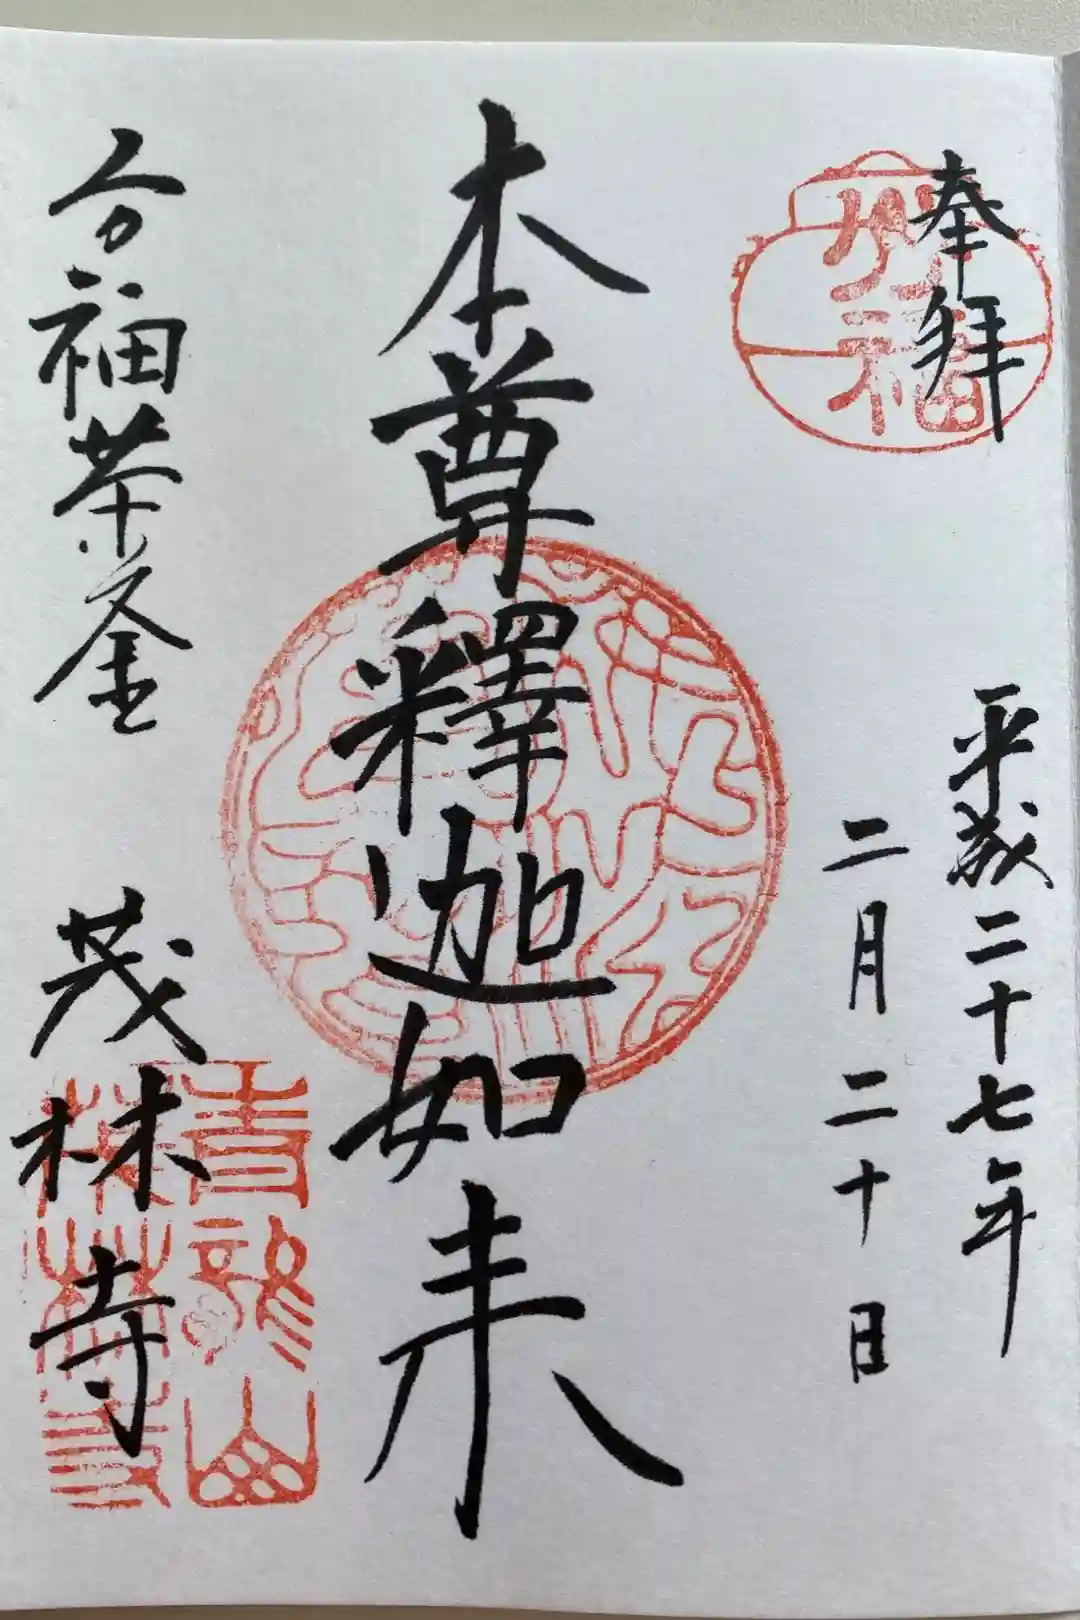 奉拝
平成二十七年
二月二十日
本尊釋迦如来
分福茶釜 茂林寺
分福
青龍山
茂林寺